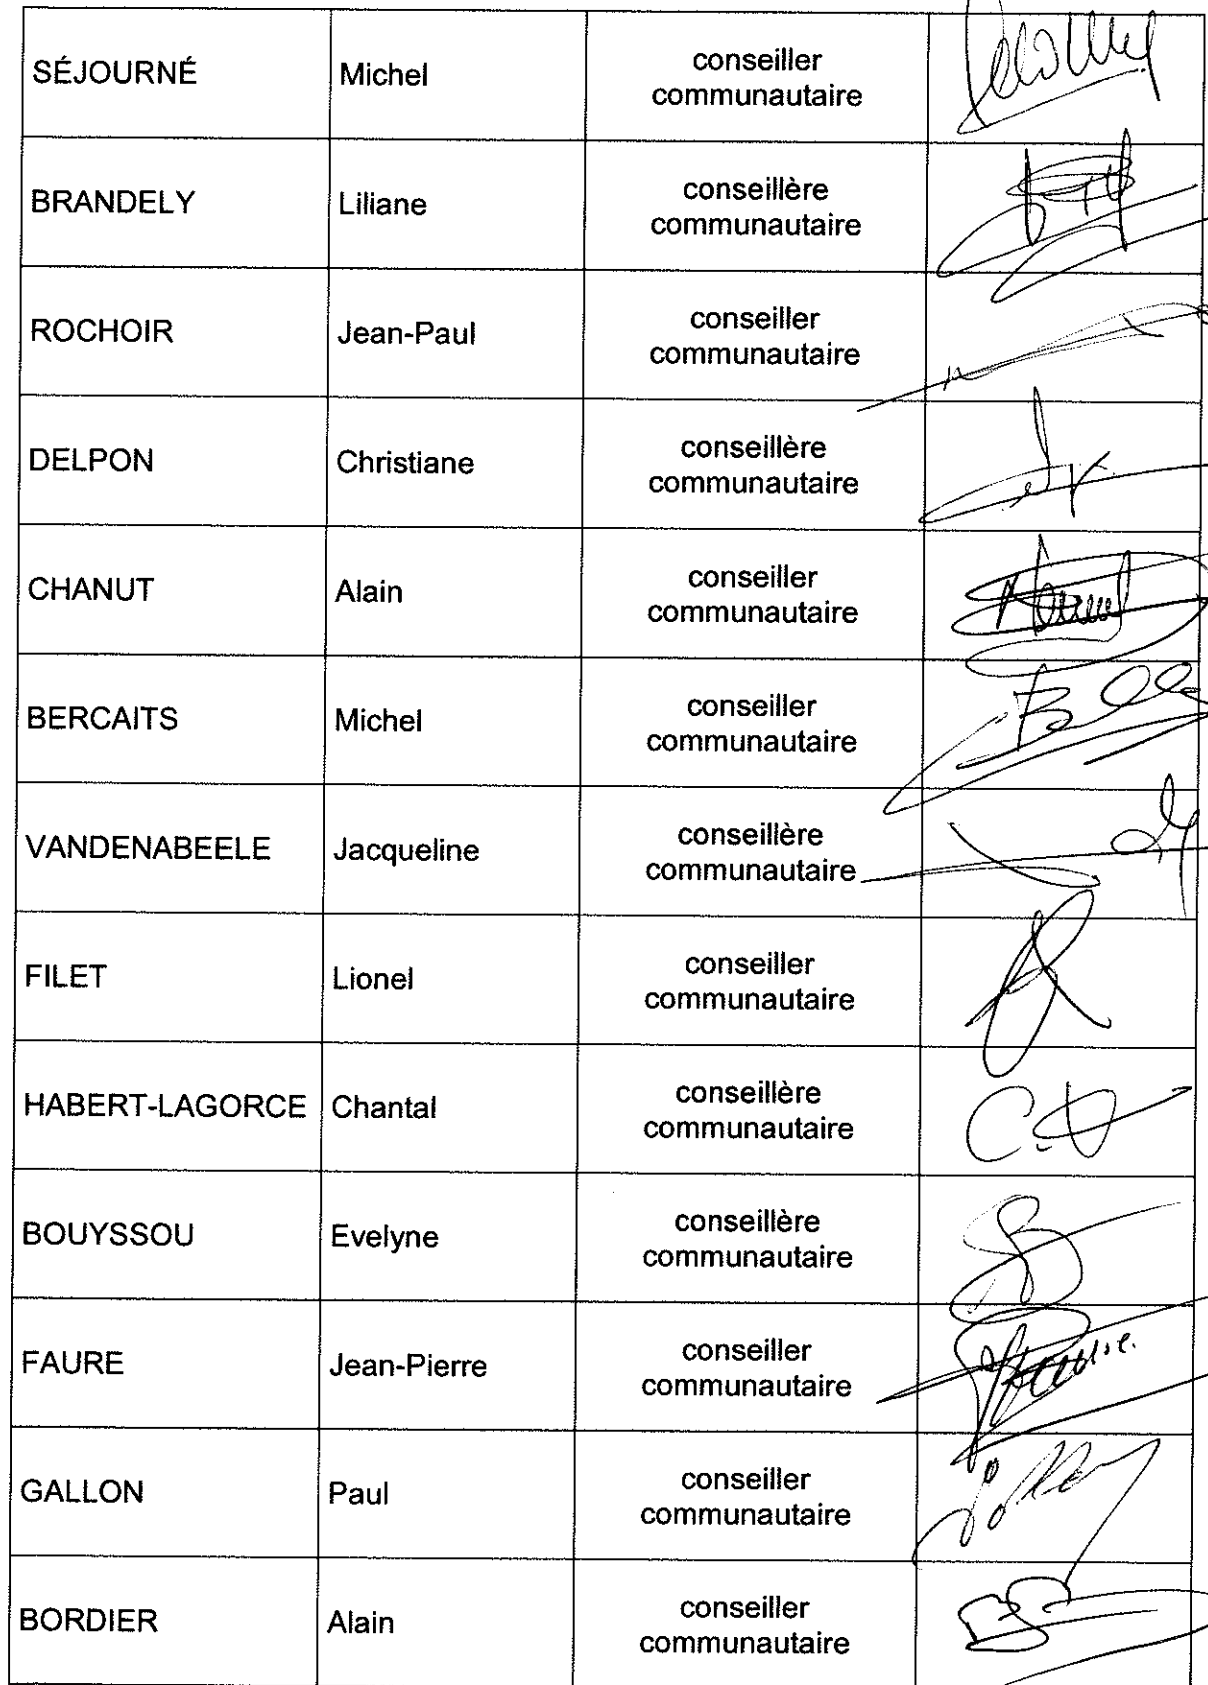 SÉJOURNÉ Michel conseiller
communautaire
BRANDELY Liliane conseillère
communautaire
ROCHOIR Jean-Paul conseiller
communautaire
DELPON Christiane conseillère
communautaire
CHANUT Alain conseiller
communautaire
BERCAITS Michel conseiller
communautaire
VANDENABEELE Jacqueline conseillère
communautaire
FILET Lionel conseiller
communautaire
HABERT-LAGORCE Chantal conseillère
communautaire
BOUYSSOU Evelyne conseillère
communautaire
FAURE Jean-Pierre conseiller
communautaire
GALLON Paul conseiller
communautaire
BORDIER Alain conseiller
communautaire